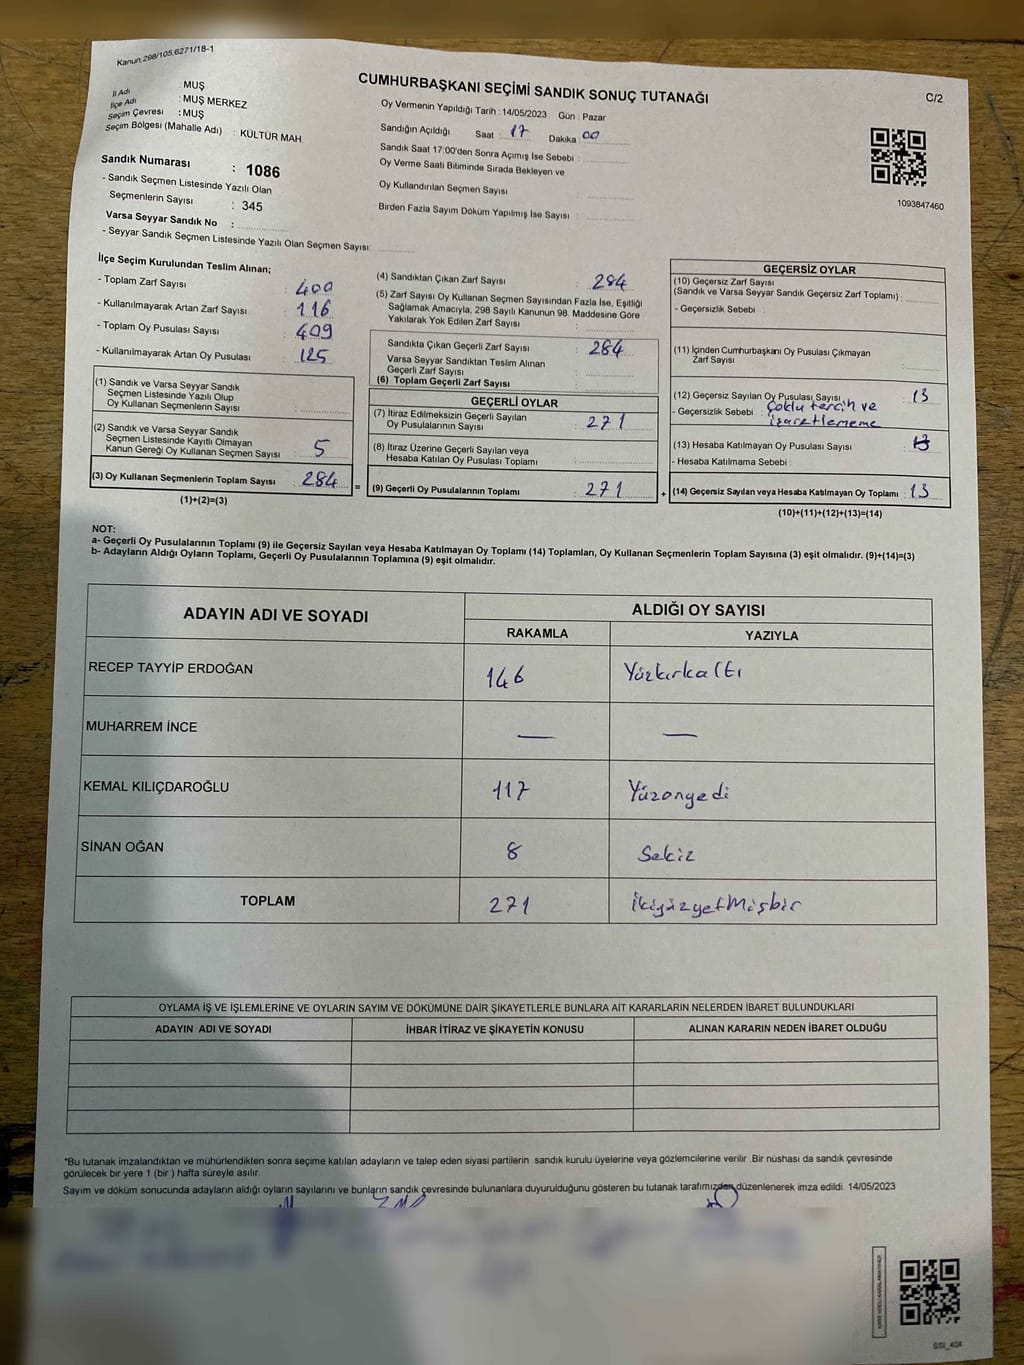 Kanun:298/105,6271/18-1
İl Adı : MUŞ
İlçe Adı : MUŞ MERKEZ
Seçim Çevresi : MUŞ
Seçim Bölgesi (Mahalle Adı) : KÜLTÜR MAH.
Sandık Numarası : 1086
- Sandık Seçmen Listesinde Yazılı Olan
Seçmenlerin Sayısı : 345
Varsa Seyyar Sandık No :
- Seyyar Sandık Seçmen Listesinde Yazılı Olan Seçmen Sayısı:
CUMHURBAŞKANI SEÇİMİ SANDIK SONUÇ TUTANAĞI
C/2
Oy Vermenin Yapıldığı Tarih : 14/05/2023 Gün : Pazar
Sandığın Açıldığı Saat : 17 Dakika 00
Sandık Saat 17:00'den Sonra Açımış İse Sebebi :
Oy Verme Saati Bitiminde Sırada Bekleyen ve
Oy Kullandırılan Seçmen Sayısı :
Birden Fazla Sayım Döküm Yapılmış İse Sayısı :
1093847460
İlçe Seçim Kurulundan Teslim Alınan;
- Toplam Zarf Sayısı : 400
- Kullanılmayarak Artan Zarf Sayısı : 116
- Toplam Oy Pusulası Sayısı : 409
- Kullanılmayarak Artan Oy Pusulası : 125
(1) Sandık ve Varsa Seyyar Sandık
Seçmen Listesinde Yazılı Olup
Oy Kullanan Seçmenlerin Sayısı :
(2) Sandık ve Varsa Seyyar Sandık
Seçmen Listesinde Kayıtlı Olmayan
Kanun Gereği Oy Kullanan Seçmen Sayısı : 5
(3) Oy Kullanan Seçmenlerin Toplam Sayısı : 284
(1)+(2)=(3)
(4) Sandıktan Çıkan Zarf Sayısı : 284
(5) Zarf Sayısı Oy Kullanan Seçmen Sayısından Fazla İse, Eşitliği
Sağlamak Amacıyla; 298 Sayılı Kanunun 98. Maddesine Göre
Yakılarak Yok Edilen Zarf Sayısı :
Sandıkta Çıkan Geçerli Zarf Sayısı : 284
Varsa Seyyar Sandıktan Teslim Alınan
Geçerli Zarf Sayısı :
(6) Toplam Geçerli Zarf Sayısı :
GEÇERLİ OYLAR
(7) İtiraz Edilmeksizin Geçerli Sayılan
Oy Pusulalarının Sayısı : 271
(8) İtiraz Üzerine Geçerli Sayılan veya
Hesaba Katılan Oy Pusulası Toplamı :
= (9) Geçerli Oy Pusulalarının Toplamı : 271 +
GEÇERSİZ OYLAR
(10) Geçersiz Zarf Sayısı
(Sandık ve Varsa Seyyar Sandık Geçersiz Zarf Toplamı) :
- Geçersizlik Sebebi :
(11) İçinden Cumhurbaşkanı Oy Pusulası Çıkmayan
Zarf Sayısı :
(12) Geçersiz Sayılan Oy Pusulası Sayısı : 13
- Geçersizlik Sebebi : Çoklu tercih ve
işaretlememe
(13) Hesaba Katılmayan Oy Pusulası Sayısı : 13
- Hesaba Katılmama Sebebi :
(14) Geçersiz Sayılan veya Hesaba Katılmayan Oy Toplamı : 13
(10)+(11)+(12)+(13)=(14)
NOT:
a- Geçerli Oy Pusulalarının Toplamı (9) ile Geçersiz Sayılan veya Hesaba Katılmayan Oy Toplamı (14) Toplamları, Oy Kullanan Seçmenlerin Toplam Sayısına (3) eşit olmalıdır. (9)+(14)=(3)
b- Adayların Aldığı Oyların Toplamı, Geçerli Oy Pusulalarının Toplamına (9) eşit olmalıdır.
ADAYIN ADI VE SOYADI ALDIĞI OY SAYISI
RAKAMLA YAZIYLA
RECEP TAYYİP ERDOĞAN 146 Yüzkırkaltı
MUHARREM İNCE — —
KEMAL KILIÇDAROĞLU 117 Yüzonyedi
SİNAN OĞAN 8 Sekiz
TOPLAM 271 İkiyüzyetmişbir
OYLAMA İŞ VE İŞLEMLERİNE VE OYLARIN SAYIM VE DÖKÜMÜNE DAİR ŞİKAYETLERLE BUNLARA AİT KARARLARIN NELERDEN İBARET BULUNDUKLARI
ADAYIN ADI VE SOYADI İHBAR İTİRAZ VE ŞİKAYETİN KONUSU ALINAN KARARIN NEDEN İBARET OLDUĞU
*Bu tutanak imzalandıktan ve mühürlendikten sonra seçime katılan adayların ve talep eden siyasi partilerin sandık kurulu üyelerine veya gözlemcilerine verilir .Bir nüshası da sandık çevresinde
görülecek bir yere 1 (bir ) hafta süreyle asılır.
Sayım ve döküm sonucunda adayların aldığı oyların sayılarını ve bunların sandık çevresinde bulunanlara duyurulduğunu gösteren bu tutanak tarafımızdan düzenlenerek imza edildi. 14/05/2023